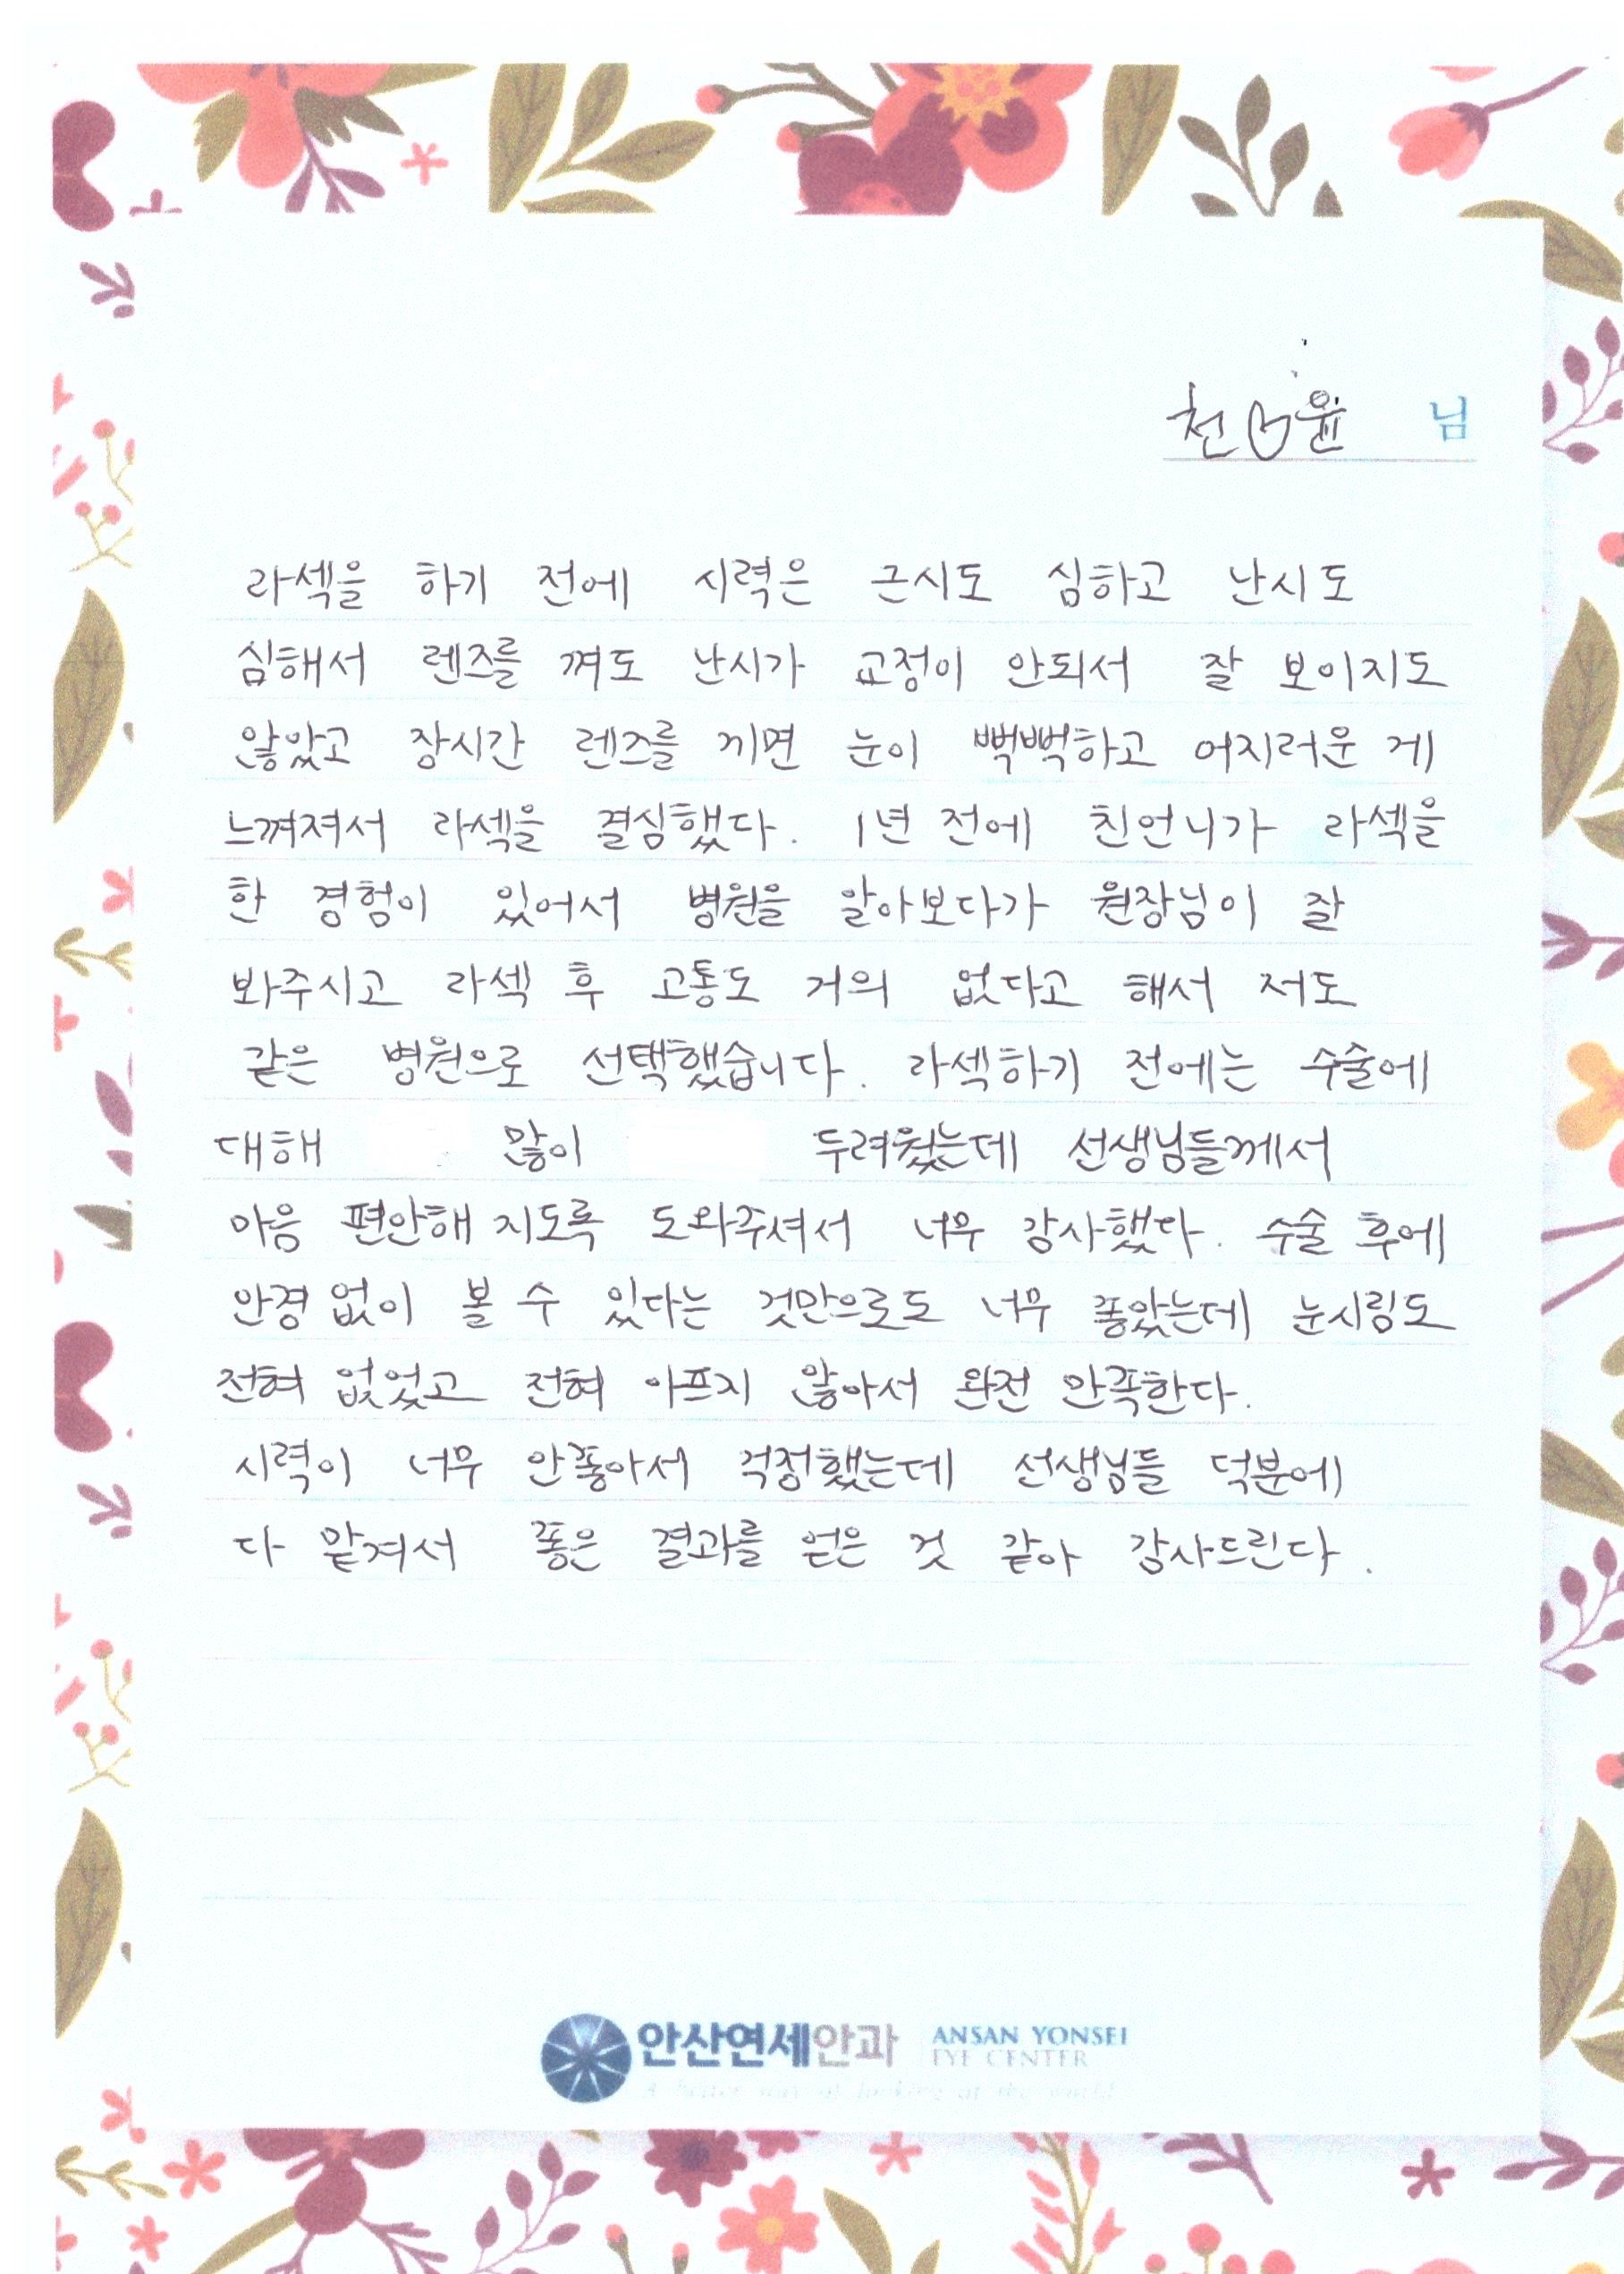 천♡윤 님
라섹을 하기 전에 시력은 근시도 심하고 난시도
심해서 렌즈를 껴도 난시가 교정이 안되서 잘 보이지도
않았고 장시간 렌즈를 끼면 눈이 뻑뻑하고 어지러운 게
느껴져서 라섹을 결심했다. 1년 전에 친언니가 라섹을
한 경험이 있어서 병원을 알아보다가 원장님이 잘
봐주시고 라섹 후 고통도 거의 없다고 해서 저도
같은 병원으로 선택했습니다. 라섹하기 전에는 수술에
대해 많이 두려웠는데 선생님들께서
마음 편안해 지도록 도와주셔서 너무 감사했다. 수술 후에
안경 없이 볼 수 있다는 것만으로도 너무 좋았는데 눈시림도
전혀 없었고 전혀 아프지 않아서 완전 만족한다.
시력이 너무 안좋아서 걱정했는데 선생님들 덕분에
다 맡겨서 좋은 결과를 얻은 것 같아 감사드린다.
안산연세안과 ANSAN YONSEI
EYE CENTER